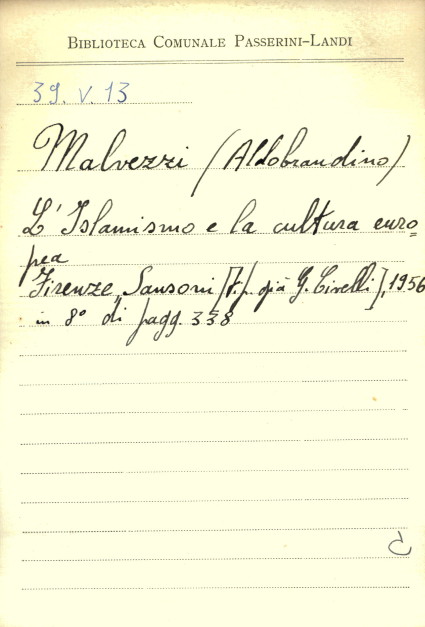 BIBLIOTECA COMUNALE PASSERINI-LANDI
39. V. 13
Malvezzi (Aldobrandino)
L'Islamismo e la cultura euro=
pea
Firenze, Sansoni [t.p. già G. Civelli], 1956
in 8° di pagg. 338